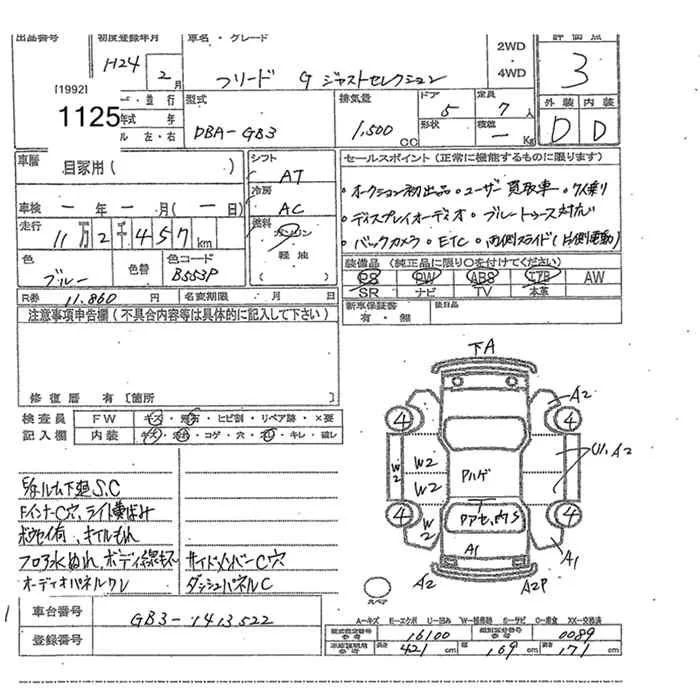 出品番号 初度登録年月 車名・グレード 評価点
H24 2月 フリード G ジャストセレクション 2WD・4WD 3
[1992]
1125
型式 排気量 ドア 5 定員 7人 外装 内装
DBA-GB3 1,500cc 形状 積載 - Kg D D
車歴 自家用( ) シフト AT セールスポイント(正常に機能するものに限ります)
冷房 AC ・オークション初出品 ・ユーザー買取車 ・7人乗り
車検 -年-月(-日) ・ディスプレイオーディオ ブルートゥース対応
走行 11万2千457km 燃料 ガソリン・軽油( ) ・バックカメラ ・ETC ・両側スライド(片側電動)
色 ブルー 色替 色コード B553P 装備品(純正品に限り○を付けてください)
PS PW ABS エアB AW
SR ナビ TV 本革
R券 11,860円 名変期限 月 日 新車保証書 有・無 後日品
注意事項申告欄(不具合内容等は具体的に記入して下さい)
修復歴 有 [箇所 ]
検査員 FW キズ・飛石・ヒビ割・リペア跡・×要
記入欄 内装 キズ・汚れ・コゲ・穴・スレ・キレ・破レ
下A
A2
4 4
W2 W2 U1,A2
W2 Pハゲ
4 4
W2 A1 A1
A2 A2P
スペア
E/gルーム下廻S.C
Fインナーc穴、ライト黄ばみ
フロア水ぬれ、ボディ線キズ サイドメンバーC穴
オーディオパネルワレ ダッシュパネルC
車台番号 GB3-1413522
登録番号
A-キズ E-エクボ U-凹み W-補修跡 S-サビ C-腐食 XX-交換済
型式指定番号 参考 16100 類別区分番号 参考 0089
長さ 421cm 幅 169cm 高さ 171cm